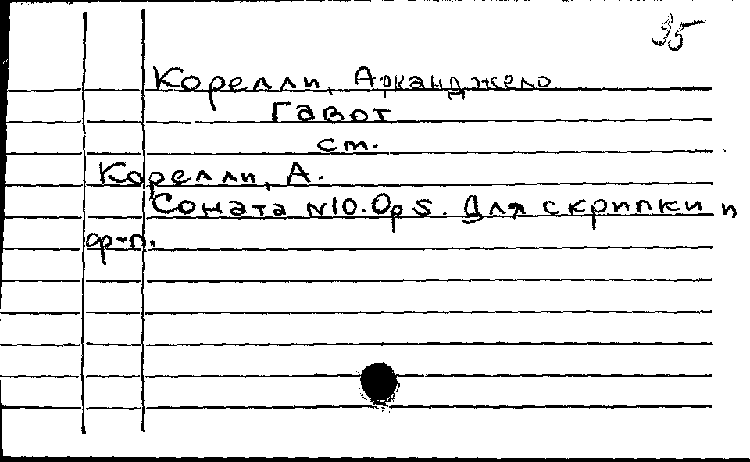 35
Корелли, Арканджело
Гавот
см.
Корелли, А.
Соната N10. Op 5. Для скрипки и
ф-п.